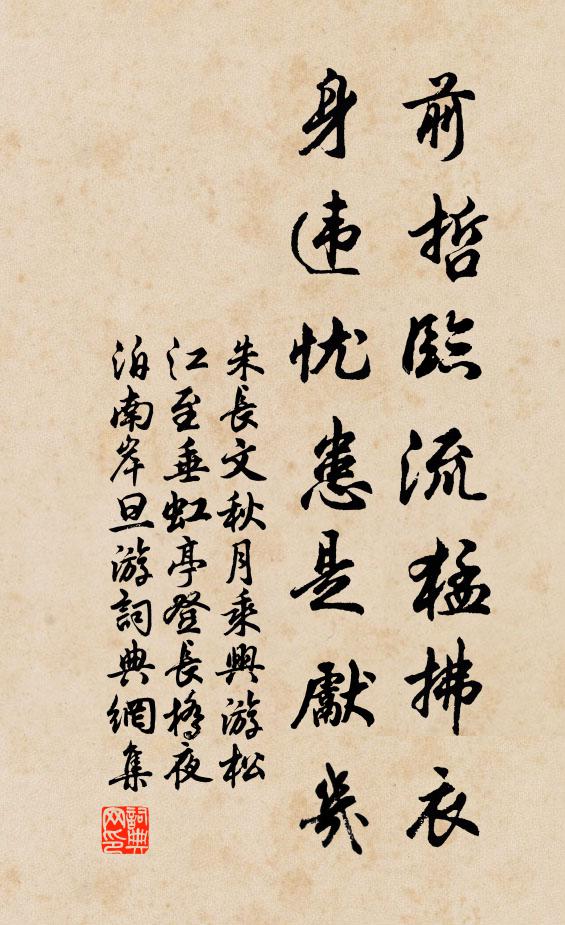 前哲臨流猛拂衣
身违忧患是獻幾
朱長文秋月乘興游松
江至垂虹亭登長橋夜
泊南岸旦游詞典網集
詞典
网印